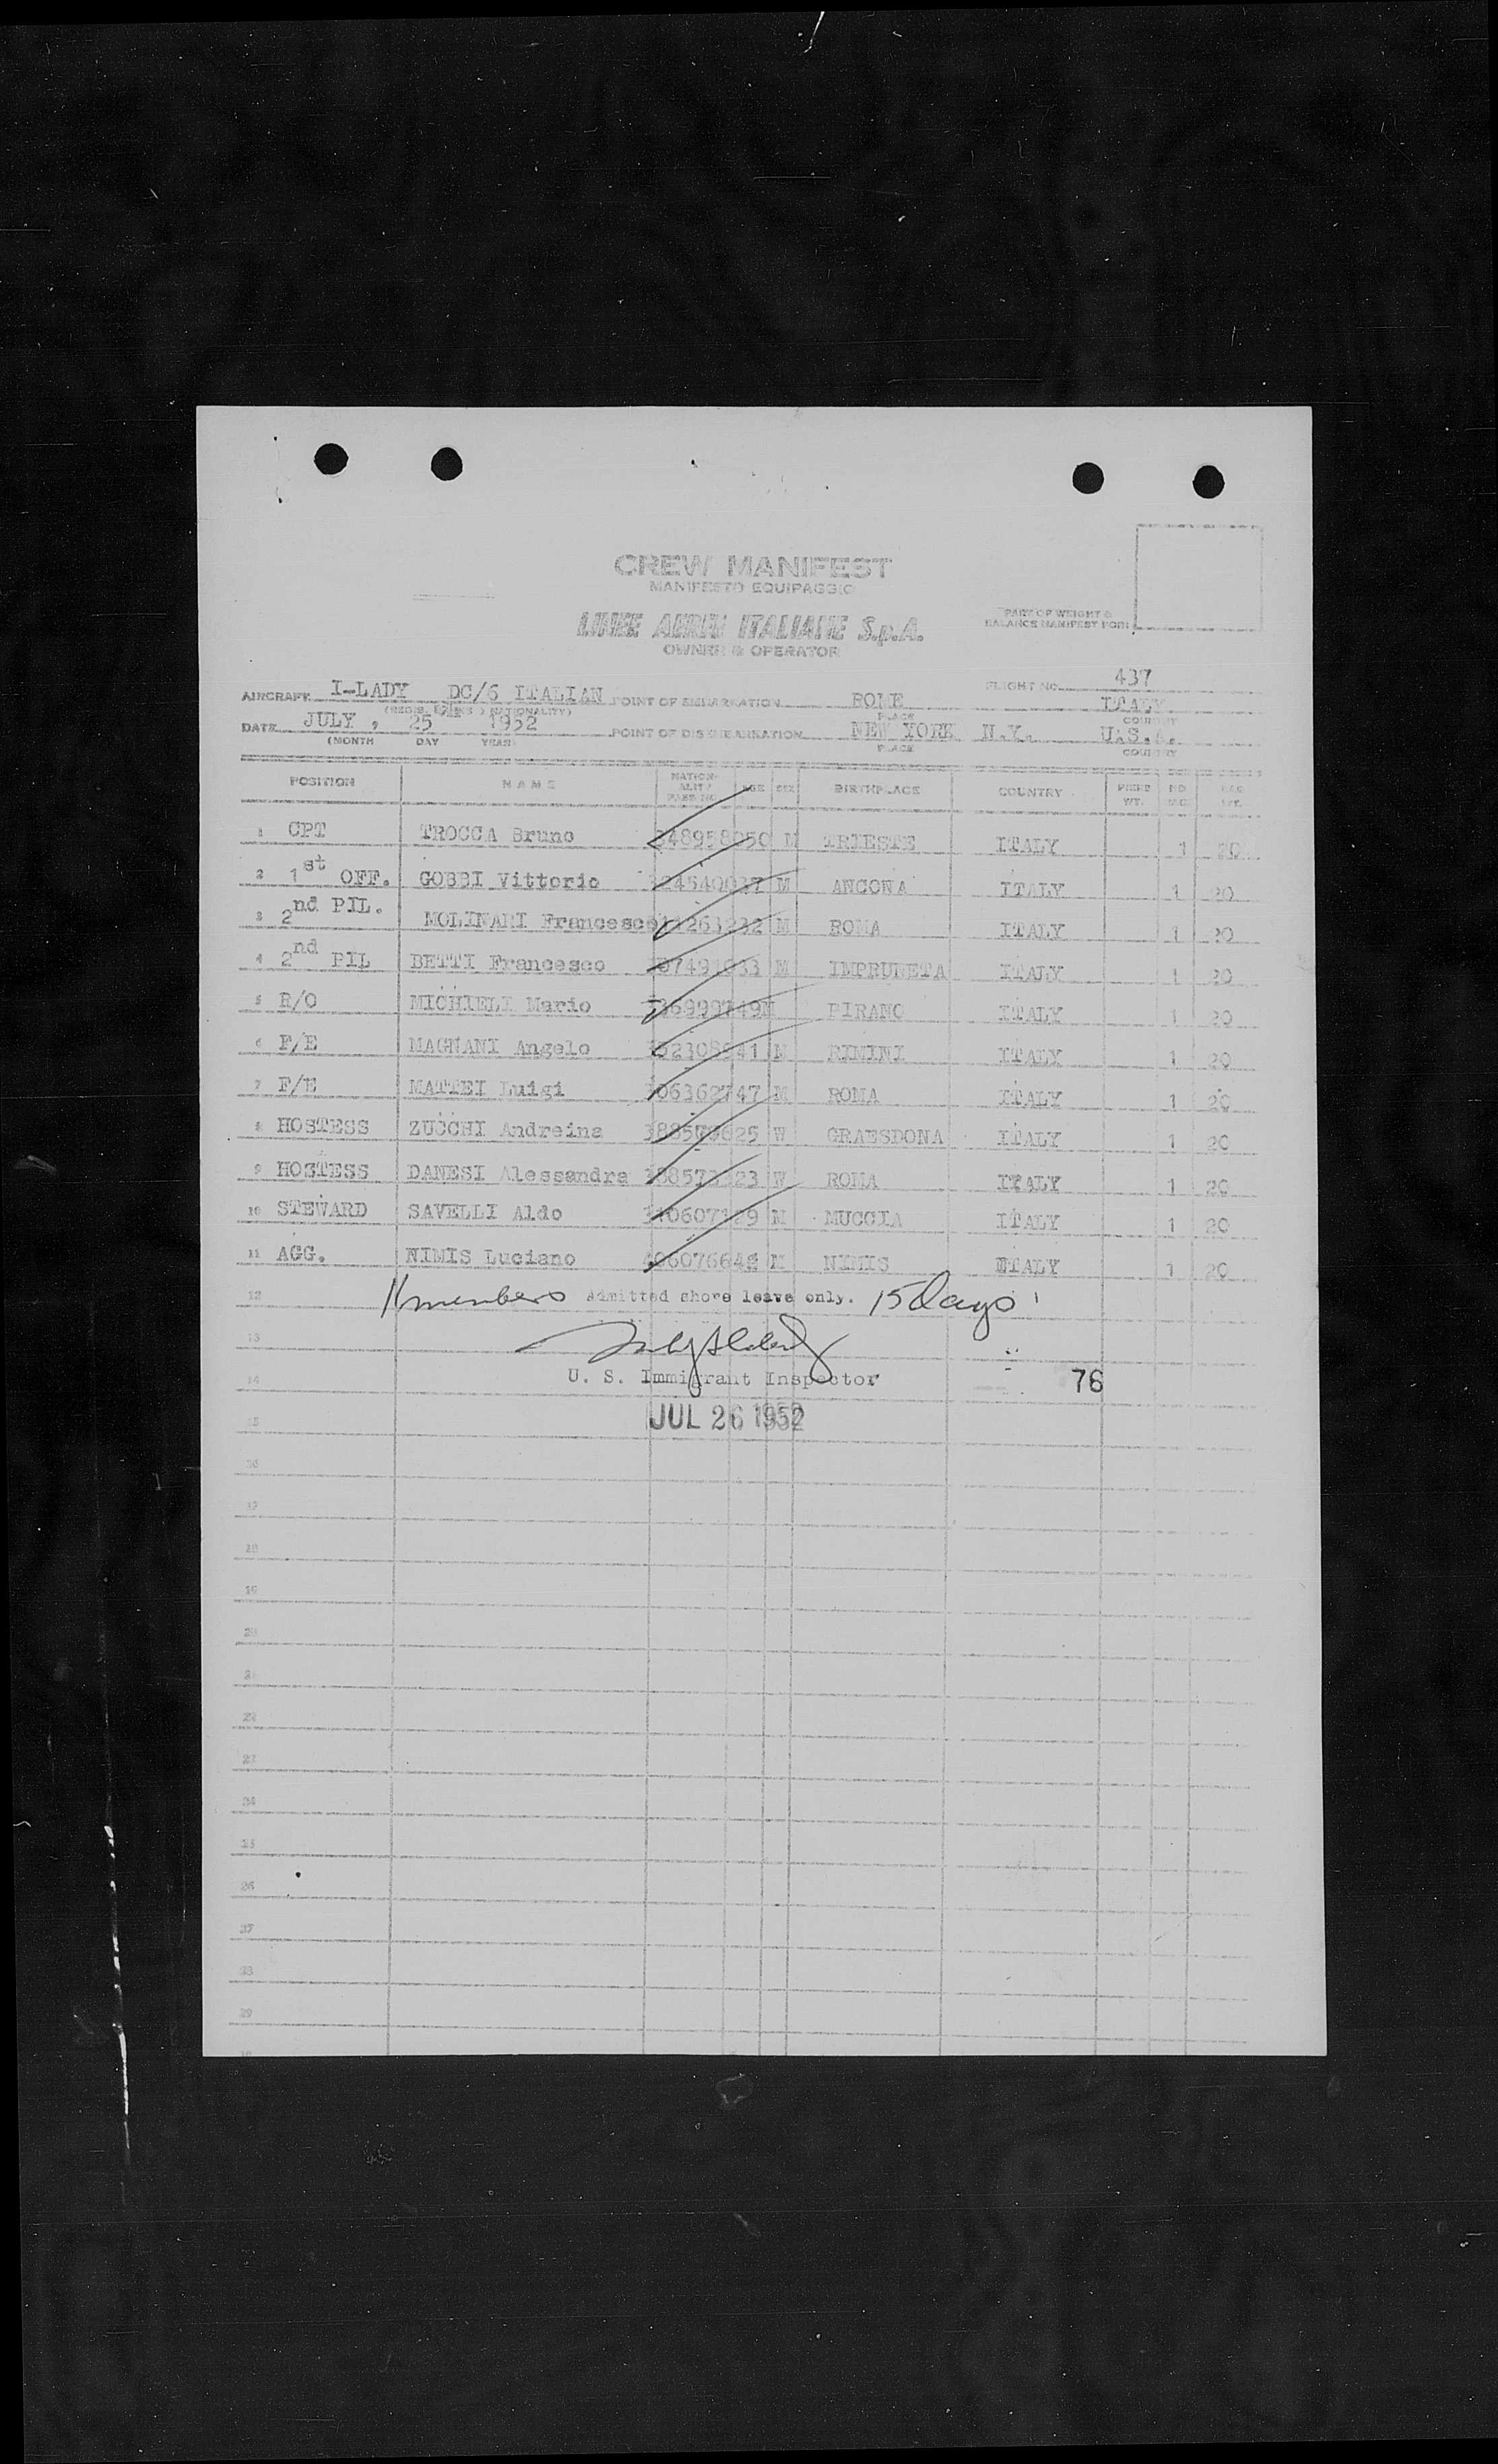 CREW MANIFEST
MANIFESTO EQUIPAGGIO
LINEE AEREE ITALIANE S.p.A.
OWNER & OPERATOR
PART OF WEIGHT &
BALANCE MANIFEST FORM
AIRCRAFT I-LADY DC/6 ITALIAN POINT OF EMBARKATION ROME ITALY FLIGHT NO. 437
(REGIS. MARKS & NATIONALITY) PLACE COUNTRY
DATE JULY , 25 1952 POINT OF DISEMBARKATION NEW YORK N.Y. U.S.A.
(MONTH DAY YEAR) PLACE COUNTRY
POSITION NAME NATIONALITY PASS NO. AGE SEX BIRTHPLACE COUNTRY WT. NO. BAG. WT.
1 CPT TROCCA Bruno M TRIESTE ITALY 1 20
2 1st OFF. GOBBI Vittorio M ANCONA ITALY 1 20
3 2nd PIL. MOLINARI Francesco M ROMA ITALY 1 20
4 2nd PIL BETTI Francesco M IMPRUNETA ITALY 1 20
5 R/O MICHIELI Mario M PIRANO ITALY 1 20
6 F/E MAGNANI Angelo M RIMINI ITALY 1 20
7 F/E MATTEI Luigi M ROMA ITALY 1 20
8 HOSTESS ZUCCHI Andreina W GRAESDONA ITALY 1 20
9 HOSTESS DANESI Alessandra W ROMA ITALY 1 20
10 STEWARD SAVELLI Aldo M MUCCIA ITALY 1 20
11 AGG. NIMIS Luciano M NIMIS ITALY 1 20
12 11 members Admitted shore leave only. 15 Days
13
14 U. S. Immigrant Inspector 76
15 JUL 26 1952
16
17
18
19
20
21
22
23
24
25
26
27
28
29